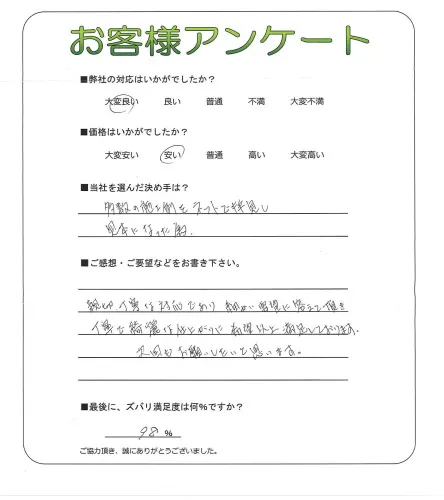 お客様アンケート
■弊社の対応はいかがでしたか？
大変良い 良い 普通 不満 大変不満
■価格はいかがでしたか？
大変安い 安い 普通 高い 大変高い
■当社を選んだ決め手は？
多数の施工例をネットで拝見し
見本になった為、
■ご感想・ご要望などをお書き下さい。
親切丁寧な対応であり 細かい要望に答えて頂き
丁寧で綺麗な仕上がりに 希望以上 満足しております。
次回もお願いしたいと思います。
■最後に、ズバリ満足度は何％ですか？
98 %
ご協力頂き、誠にありがとうございました。